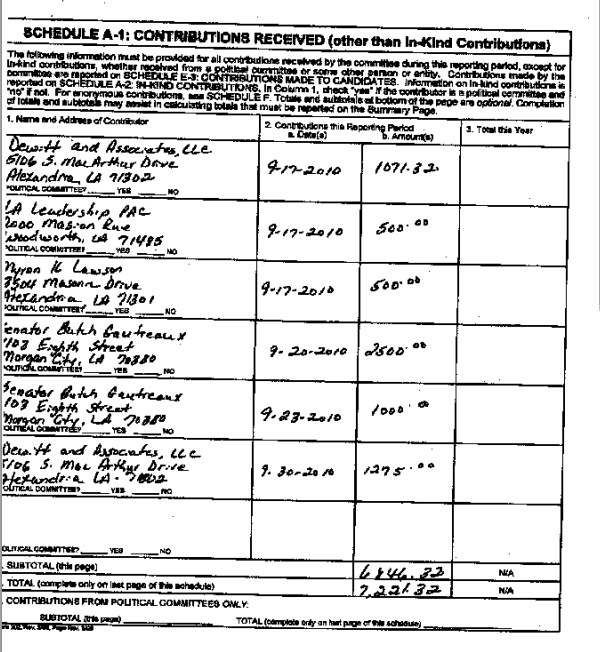 SCHEDULE A-1: CONTRIBUTIONS RECEIVED (other than In-Kind Contributions)
The following information must be provided for all contributions received by the committee during this reporting period, except for
in-kind contributions, whether received from a political committee or some other person or entity. Contributions made by the
committee are reported on SCHEDULE E-3: CONTRIBUTIONS MADE TO CANDIDATES. Information on in-kind contributions is
reported on SCHEDULE A-2: IN-KIND CONTRIBUTIONS. In Column 1, check "yes" if the contributor is a political committee and
"no" if not. For anonymous contributions, see SCHEDULE F. Totals and subtotals at bottom of the page are optional. Completion
of totals and subtotals may assist in calculating totals that must be reported on the Summary Page.
1. Name and Address of Contributor
2. Contributions this Reporting Period
a. Date(s) b. Amount(s)
3. Total this Year
Dewitt and Associates, LLC
5106 S. MacArthur Drive
Alexandria, LA 71302
9-17-2010 1071.32
POLITICAL COMMITTEE? YES NO
LA Leadership PAC
2000 Mason Rue
Woodworth, LA 71485
9-17-2010 500.00
POLITICAL COMMITTEE? YES NO
Myron K Lawson
3504 Masonn Drive
Alexandria, LA 71301
9-17-2010 500.00
POLITICAL COMMITTEE? YES NO
Senator Butch Gautreaux
1103 Eighth Street
Morgan City, LA 70380
9-20-2010 2500.00
POLITICAL COMMITTEE? YES NO
Senator Butch Gautreaux
1103 Eighth Street
Morgan City, LA 70380
9-23-2010 1000.00
POLITICAL COMMITTEE? YES NO
Dewitt and Associates, LLC
5106 S. Mac Arthur Drive
Alexandria LA 71302
9-30-2010 1275.00
POLITICAL COMMITTEE? YES NO
OLITICAL COMMITTEE? YES NO
SUBTOTAL (this page) 6846.32 N/A
TOTAL (complete only on last page of this schedule) 7,221.32 N/A
CONTRIBUTIONS FROM POLITICAL COMMITTEES ONLY:
SUBTOTAL (this page) TOTAL (complete only on last page of this schedule)